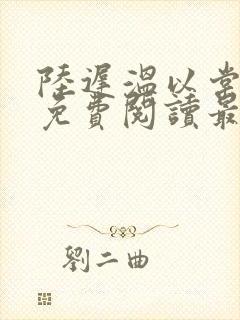 陸遲溫以常
免費閱讀最
劉二曲